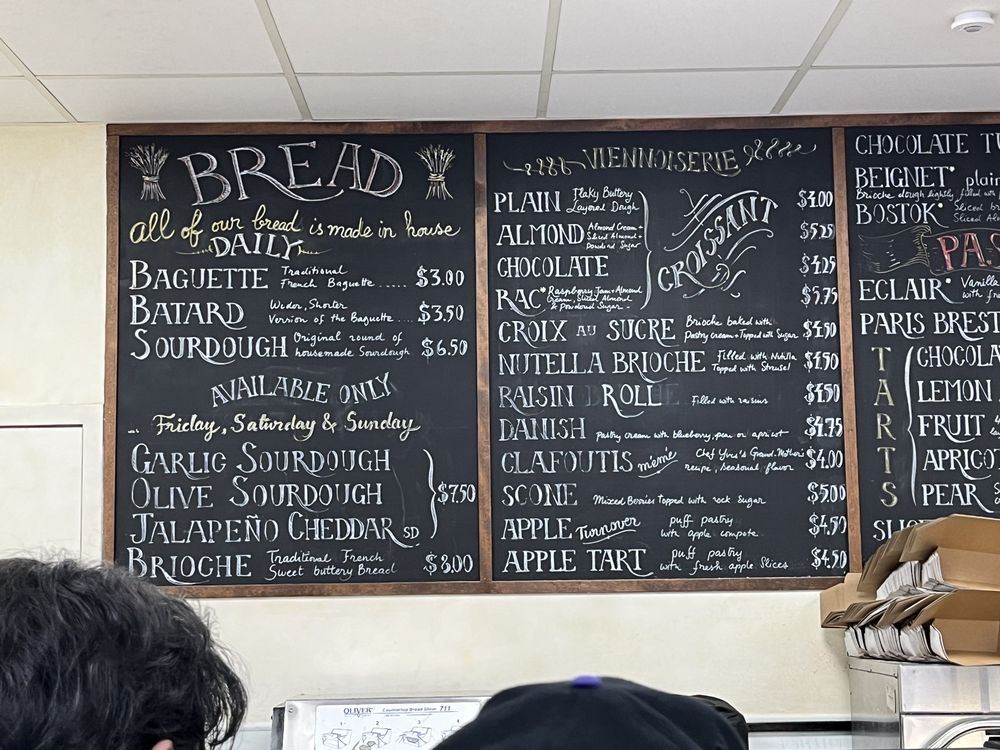 BREAD
all of our bread is made in house
DAILY
BAGUETTE Traditional French Baguette ..... $3.00
BATARD Wider, Shorter Version of the Baguette .... $3.50
SOURDOUGH Original round of housemade Sourdough $6.50
AVAILABLE ONLY
Friday, Saturday & Sunday
GARLIC SOURDOUGH
OLIVE SOURDOUGH $7.50
JALAPEÑO CHEDDAR SD
BRIOCHE Traditional French Sweet buttery Bread $8.00
VIENNOISERIE
CROISSANT
PLAIN Flaky Buttery Layered Dough $4.00
ALMOND Almond Cream + Sliced Almond + Powdered Sugar $5.25
CHOCOLATE $4.25
RAC* Raspberry Jam + Almond Cream, Sliced Almond & Powdered Sugar $5.75
CROIX AU SUCRE Brioche baked with Pastry cream + Topped with Sugar $4.50
NUTELLA BRIOCHE filled with Nutella Topped with Strusel $4.50
RAISIN ROLL Filled with raisins $4.50
DANISH Pastry cream with blueberry, pear or apricot $4.75
CLAFOUTIS mémé Chef Yves's Grand-Mother's recipe, seasonal flavor $4.00
SCONE Mixed Berries topped with rock Sugar $5.00
APPLE Turnover puff pastry with apple compote $4.50
APPLE TART puff pastry with fresh apple Slices $4.50
CHOCOLATE
BEIGNET* plain
Brioche dough lightly filled with
BOSTOK* Sliced
Sliced
PAS
ECLAIR* Vanilla
with
PARIS BREST
TARTS
CHOCOLA
LEMON
FRUIT
APRICOT
PEAR
OLIVER Countertop Bread Slicer 711
1 2 3 4